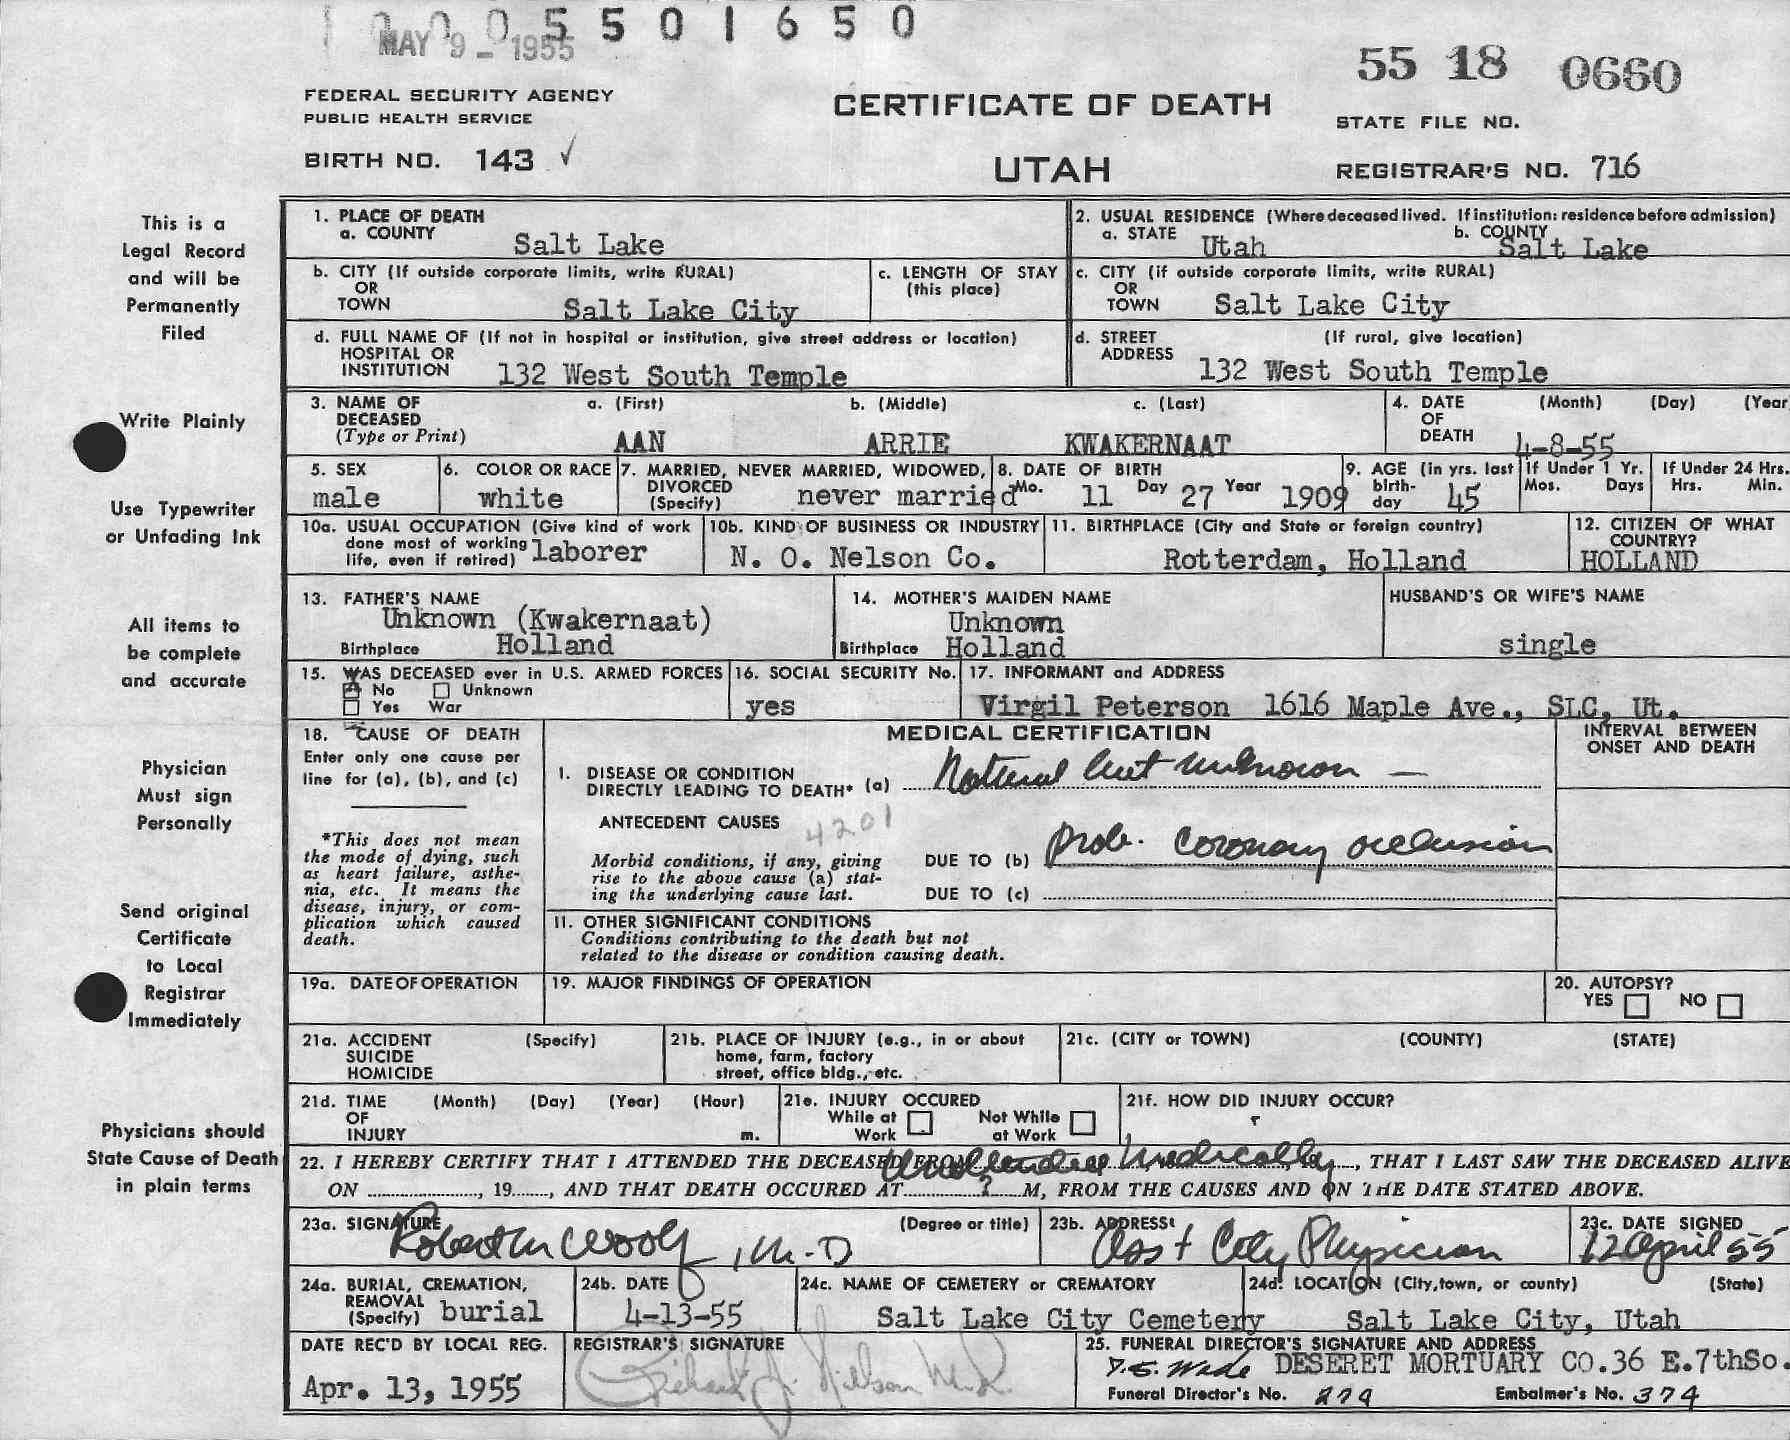 1 0 0 0 5 5 0 1 6 5 0
MAY 9 - 1955
55 18 0660
FEDERAL SECURITY AGENCY
PUBLIC HEALTH SERVICE
CERTIFICATE OF DEATH
STATE FILE NO.
BIRTH NO. 143 ✓
UTAH
REGISTRAR'S NO. 716
This is a
Legal Record
and will be
Permanently
Filed
Write Plainly
Use Typewriter
or Unfading Ink
All items to
be complete
and accurate
Physician
Must sign
Personally
Send original
Certificate
to Local
Registrar
Immediately
Physicians should
State Cause of Death
in plain terms
1. PLACE OF DEATH
a. COUNTY Salt Lake
2. USUAL RESIDENCE (Where deceased lived. If institution: residence before admission)
a. STATE Utah b. COUNTY Salt Lake
b. CITY (If outside corporate limits, write RURAL)
OR
TOWN Salt Lake City
c. LENGTH OF STAY
(this place)
c. CITY (if outside corporate limits, write RURAL)
OR
TOWN Salt Lake City
d. FULL NAME OF (If not in hospital or institution, give street address or location)
HOSPITAL OR
INSTITUTION 132 West South Temple
d. STREET (If rural, give location)
ADDRESS
132 West South Temple
3. NAME OF a. (First) b. (Middle) c. (Last)
DECEASED
(Type or Print) AAN ARRIE KWAKERNAAT
4. DATE (Month) (Day) (Year
OF
DEATH 4-8-55
5. SEX
male
6. COLOR OR RACE
white
7. MARRIED, NEVER MARRIED, WIDOWED,
DIVORCED
(Specify) never married
8. DATE OF BIRTH
Mo. 11 Day 27 Year 1909
9. AGE (in yrs. last
birth-
day 45
If Under 1 Yr.
Mos. Days
If Under 24 Hrs.
Hrs. Min.
10a. USUAL OCCUPATION (Give kind of work
done most of working
life, even if retired) laborer
10b. KIND OF BUSINESS OR INDUSTRY
N. O. Nelson Co.
11. BIRTHPLACE (City and State or foreign country)
Rotterdam, Holland
12. CITIZEN OF WHAT
COUNTRY?
HOLLAND
13. FATHER'S NAME
Unknown (Kwakernaat)
Birthplace Holland
14. MOTHER'S MAIDEN NAME
Unknown
Birthplace Holland
HUSBAND'S OR WIFE'S NAME
single
15. WAS DECEASED ever in U.S. ARMED FORCES
X No Unknown
Yes War
16. SOCIAL SECURITY No.
yes
17. INFORMANT and ADDRESS
Virgil Peterson 1616 Maple Ave., SLC, Ut.
18. CAUSE OF DEATH
Enter only one cause per
line for (a), (b), and (c)
*This does not mean
the mode of dying, such
as heart failure, asthe-
nia, etc. It means the
disease, injury, or com-
plication which caused
death.
MEDICAL CERTIFICATION
INTERVAL BETWEEN
ONSET AND DEATH
I. DISEASE OR CONDITION
DIRECTLY LEADING TO DEATH* (a) Natural but unknown —
ANTECEDENT CAUSES 4201
Morbid conditions, if any, giving
rise to the above cause (a) stat-
ing the underlying cause last.
DUE TO (b) prob. coronary occlusion
DUE TO (c)
II. OTHER SIGNIFICANT CONDITIONS
Conditions contributing to the death but not
related to the disease or condition causing death.
19a. DATE OF OPERATION
19. MAJOR FINDINGS OF OPERATION
20. AUTOPSY?
YES NO
21a. ACCIDENT (Specify)
SUICIDE
HOMICIDE
21b. PLACE OF INJURY (e.g., in or about
home, farm, factory
street, office bldg., etc.
21c. (CITY or TOWN) (COUNTY) (STATE)
21d. TIME (Month) (Day) (Year) (Hour)
OF
INJURY m.
21e. INJURY OCCURED
While at Work Not While at Work
21f. HOW DID INJURY OCCUR?
22. I HEREBY CERTIFY THAT I ATTENDED THE DECEASED FROM Unattended Medically, 19, THAT I LAST SAW THE DECEASED ALIVE
ON, 19, AND THAT DEATH OCCURED AT ? M, FROM THE CAUSES AND ON THE DATE STATED ABOVE.
23a. SIGNATURE (Degree or title)
Robert M Woolf, M.D
23b. ADDRESS
Ass't City Physician
23c. DATE SIGNED
12 April 55
24a. BURIAL, CREMATION,
REMOVAL
(Specify) burial
24b. DATE
4-13-55
24c. NAME OF CEMETERY or CREMATORY
Salt Lake City Cemetery
24d. LOCATION (City, town, or county) (State)
Salt Lake City, Utah
DATE REC'D BY LOCAL REG.
Apr. 13, 1955
REGISTRAR'S SIGNATURE
Richard J. Nelson M.D.
25. FUNERAL DIRECTOR'S SIGNATURE AND ADDRESS
D.E. Wade DESERET MORTUARY CO.36 E.7thSo.
Funeral Director's No. 279 Embalmer's No. 374